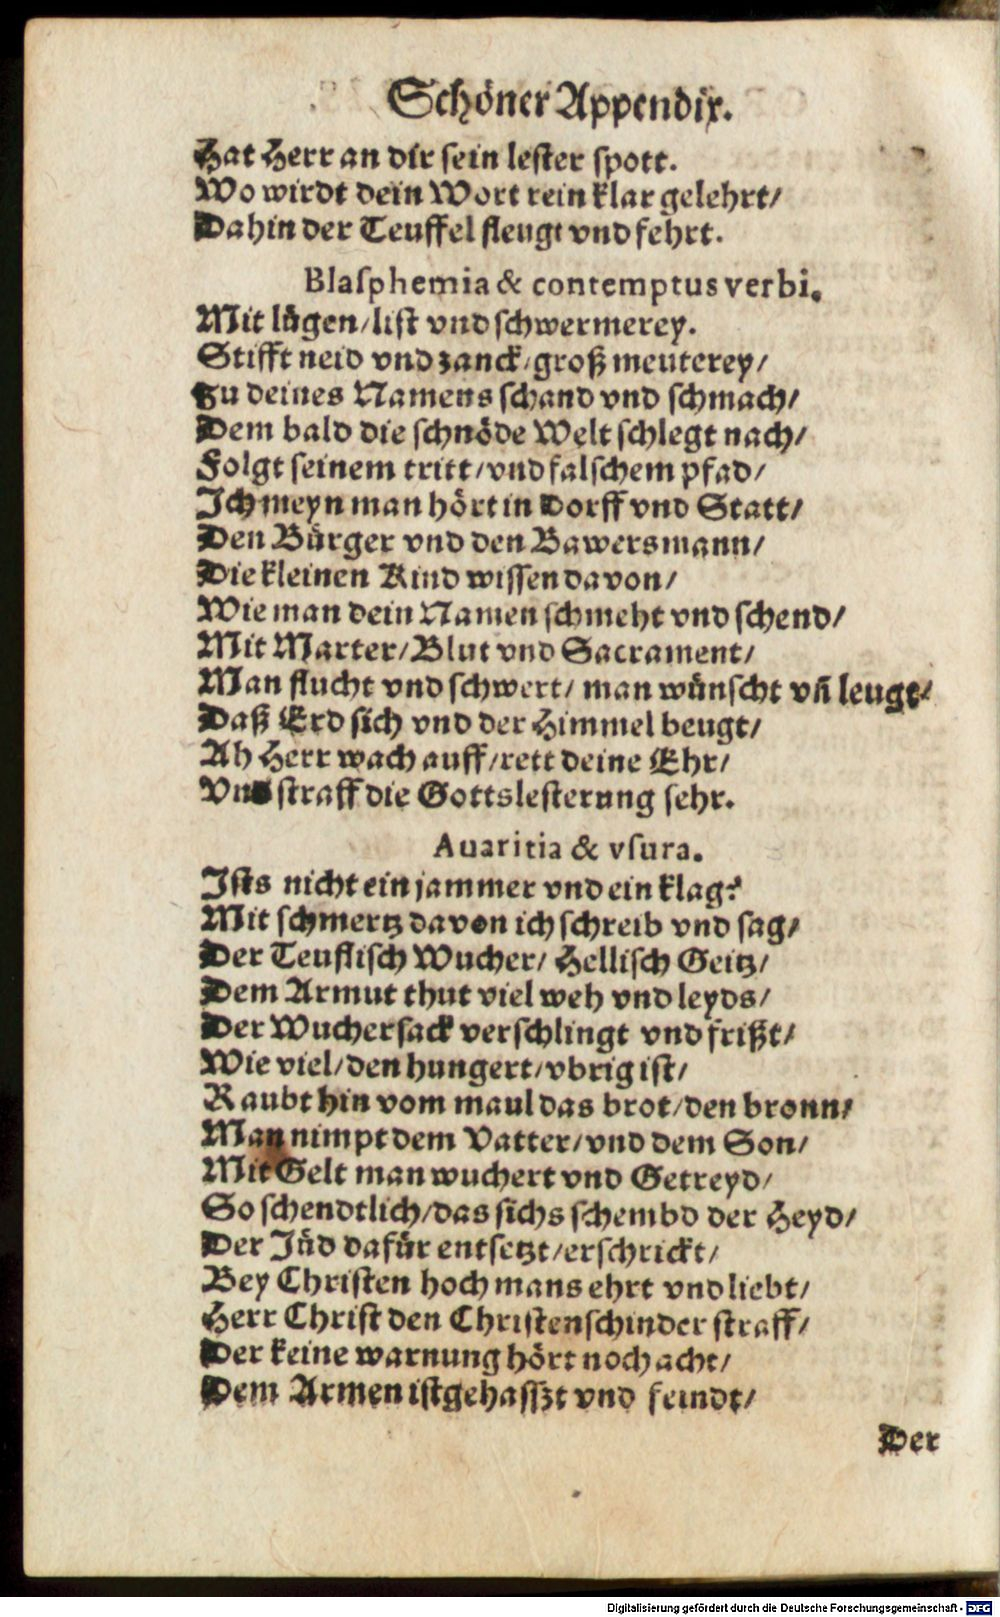 Schöner Appendix.
Hat Herr an dir sein lester spott.
Wo wirdt dein Wort rein klar gelehrt/
Dahin der Teuffel fleugt vnd fehrt.
Blasphemia & contemptus verbi.
Mit lügen/list vnd schwermerey.
Stifft neid vnd zanck/groß meuterey/
Zu deines Namens schand vnd schmach/
Dem bald die schnöde Welt schlegt nach/
Folgt seinem tritt/vnd falschem pfad/
Ich meyn man hört in Dorff vnd Statt/
Den Bürger vnd den Bawersmann/
Die kleinen Kind wissen davon/
Wie man dein Namen schmeht vnd schend/
Mit Marter/Blut vnd Sacrament/
Man flucht vnd schwert/ man wünscht vñ leugt/
Daß Erd sich vnd der Himmel beugt/
Ah Herr wach auff/rett deine Ehr/
Vnd straff die Gottslesterung sehr.
Avaritia & vsura.
Ists nicht ein jammer vnd ein klag?
Mit schmertz davon ich schreib vnd sag/
Der Teuflisch Wucher/ Hellisch Geitz/
Dem Armut thut viel weh vnd leyds/
Der Wuchersack verschlingt vnd frißt/
Wie viel/den hungert/vbrig ist/
Raubt hin vom maul das brot/den bronn/
Man nimpt dem Vatter/vnd dem Son/
Mit Gelt man wuchert vnd Getreyd/
So schendtlich/das sichs schembd der Heyd/
Der Jüd dafür entsetzt/erschrickt/
Bey Christen hoch mans ehrt vnd liebt/
Herr Christ den Christenschinder straff/
Der keine warnung hört noch acht/
Dem Armen ist gehasszt vnd feindt/
Der
Digitalisierung gefördert durch die Deutsche Forschungsgemeinschaft - DFG